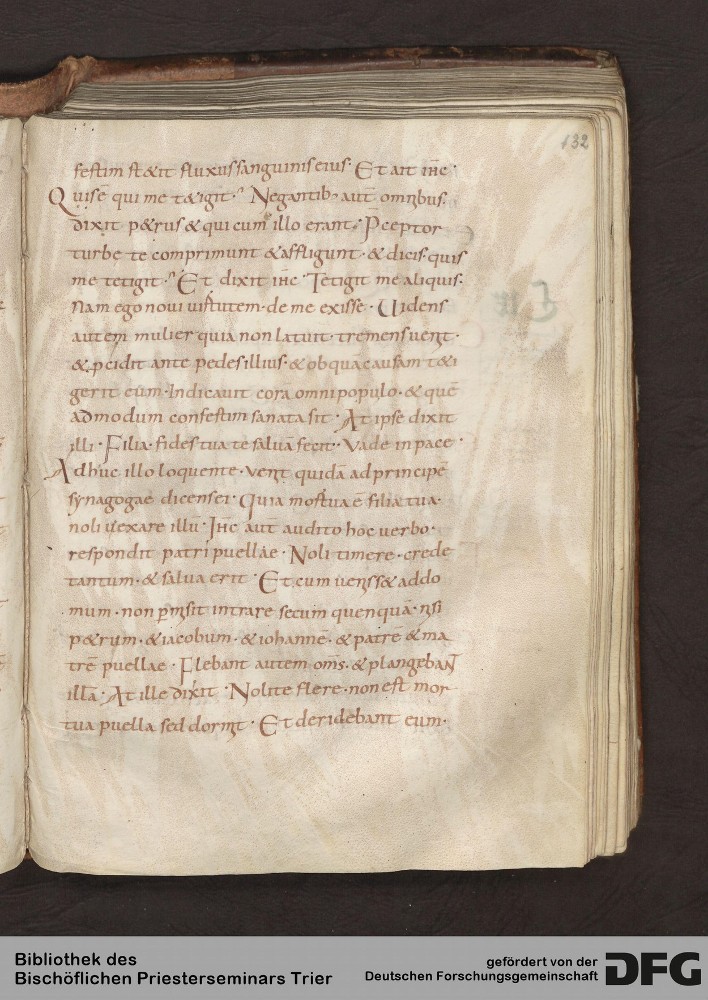 132
festim st&it fluxus sanguinis eius · Et ait ihc ·
Quis ē qui me t&igit ? Negantib; aut̄ omnibus ·
dixit p&rus & qui cum illo erant · Pceptor
turbe te comprimunt & affligunt · & dicis · quis
me tetigit ? Et dixit ihc · Tetigit me aliquis ·
Nam ego novi virtutem · de me exisse · Uidens
autem mulier quia non latuit · tremens venit ·
& pcidit ante pedes illius · & ob qua causam t&i
gerit eum · Indicavit corā omni populo · & quē
admodum confestim sanata sit · At ipse dixit
illi · Filia · fides tua te salvā fecit · Vade in pace ·
Adhuc illo loquente · venit quidā ad principē
synagogae dicens ei · Quia mortua ē filia tua ·
noli vexare illū · Ihc aut̄ audito hoc verbo ·
respondit patri puellae · Noli timere · crede
tantum · & salva erit · Et cum veniss& ad do
mum · non pmisit intrare secum quenquā · nisi
p&rum · & iacobum · & iohannē · & patrē & ma
trē puellae · Flebant autem om̄s · & plangebant
illā · At ille dixit · Nolite flere · non est mor
tua puella sed dormit · Et deridebant eum ·
Bibliothek des
Bischöflichen Priesterseminars Trier
gefördert von der
Deutschen Forschungsgemeinschaft
DFG